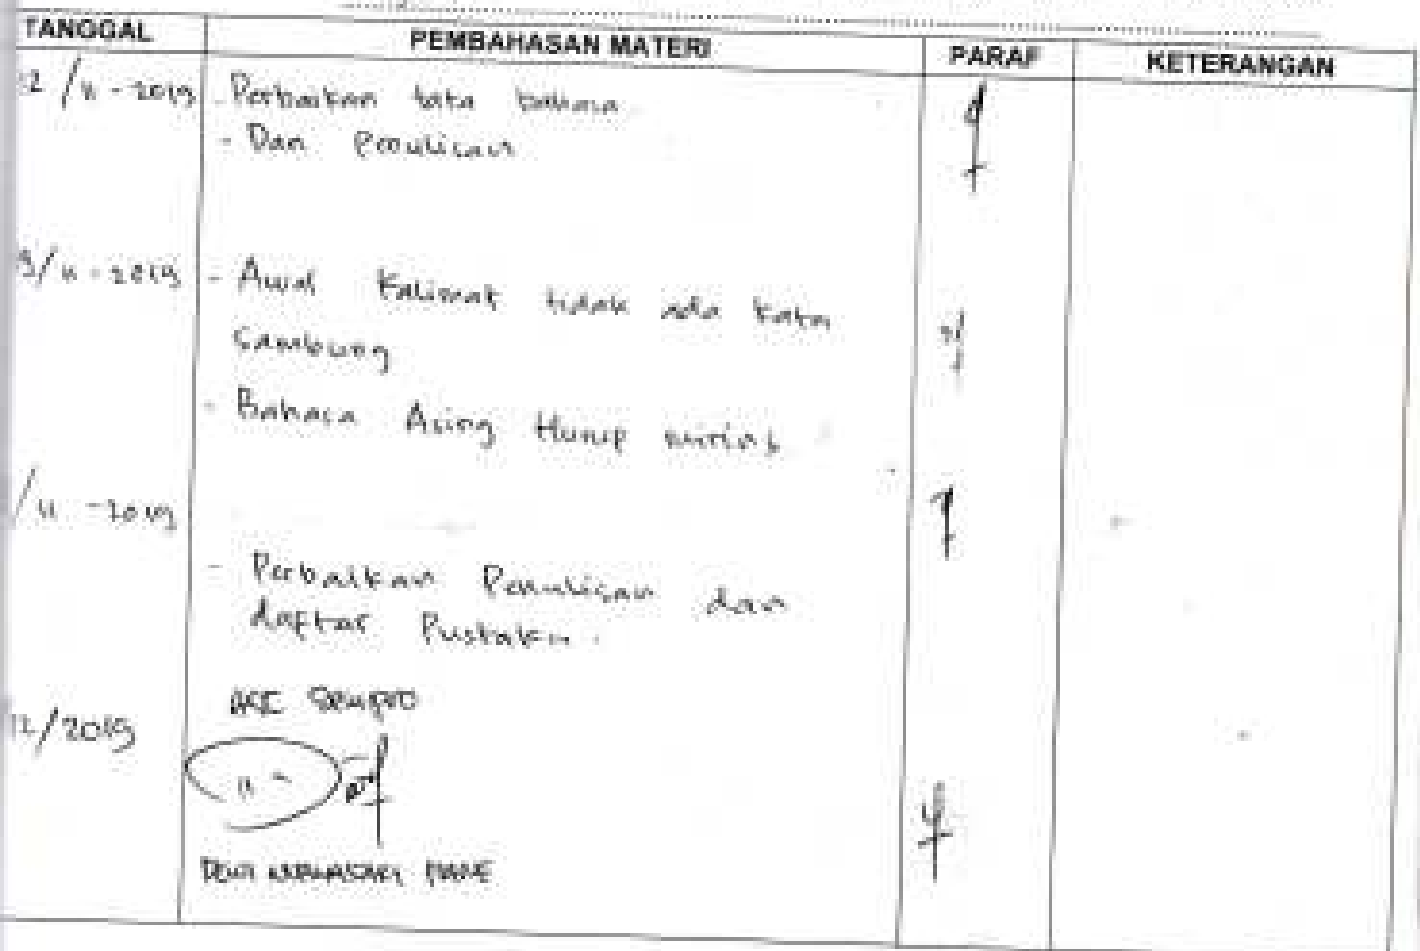 TANGGAL PEMBAHASAN MATERI PARAF KETERANGAN
12 / 11 - 2019 - Perbaikan tata bahasa
- Dan Penulisan
9/ 11 - 2019 - Awal Kalimat tidak ada kata
Sambung
- Bahasa Asing Hurup miring
/ 11 - 2019
- Perbaikan Penulisan dan
daftar Pustaka.
ACC Sempro
12/2019
DEWI